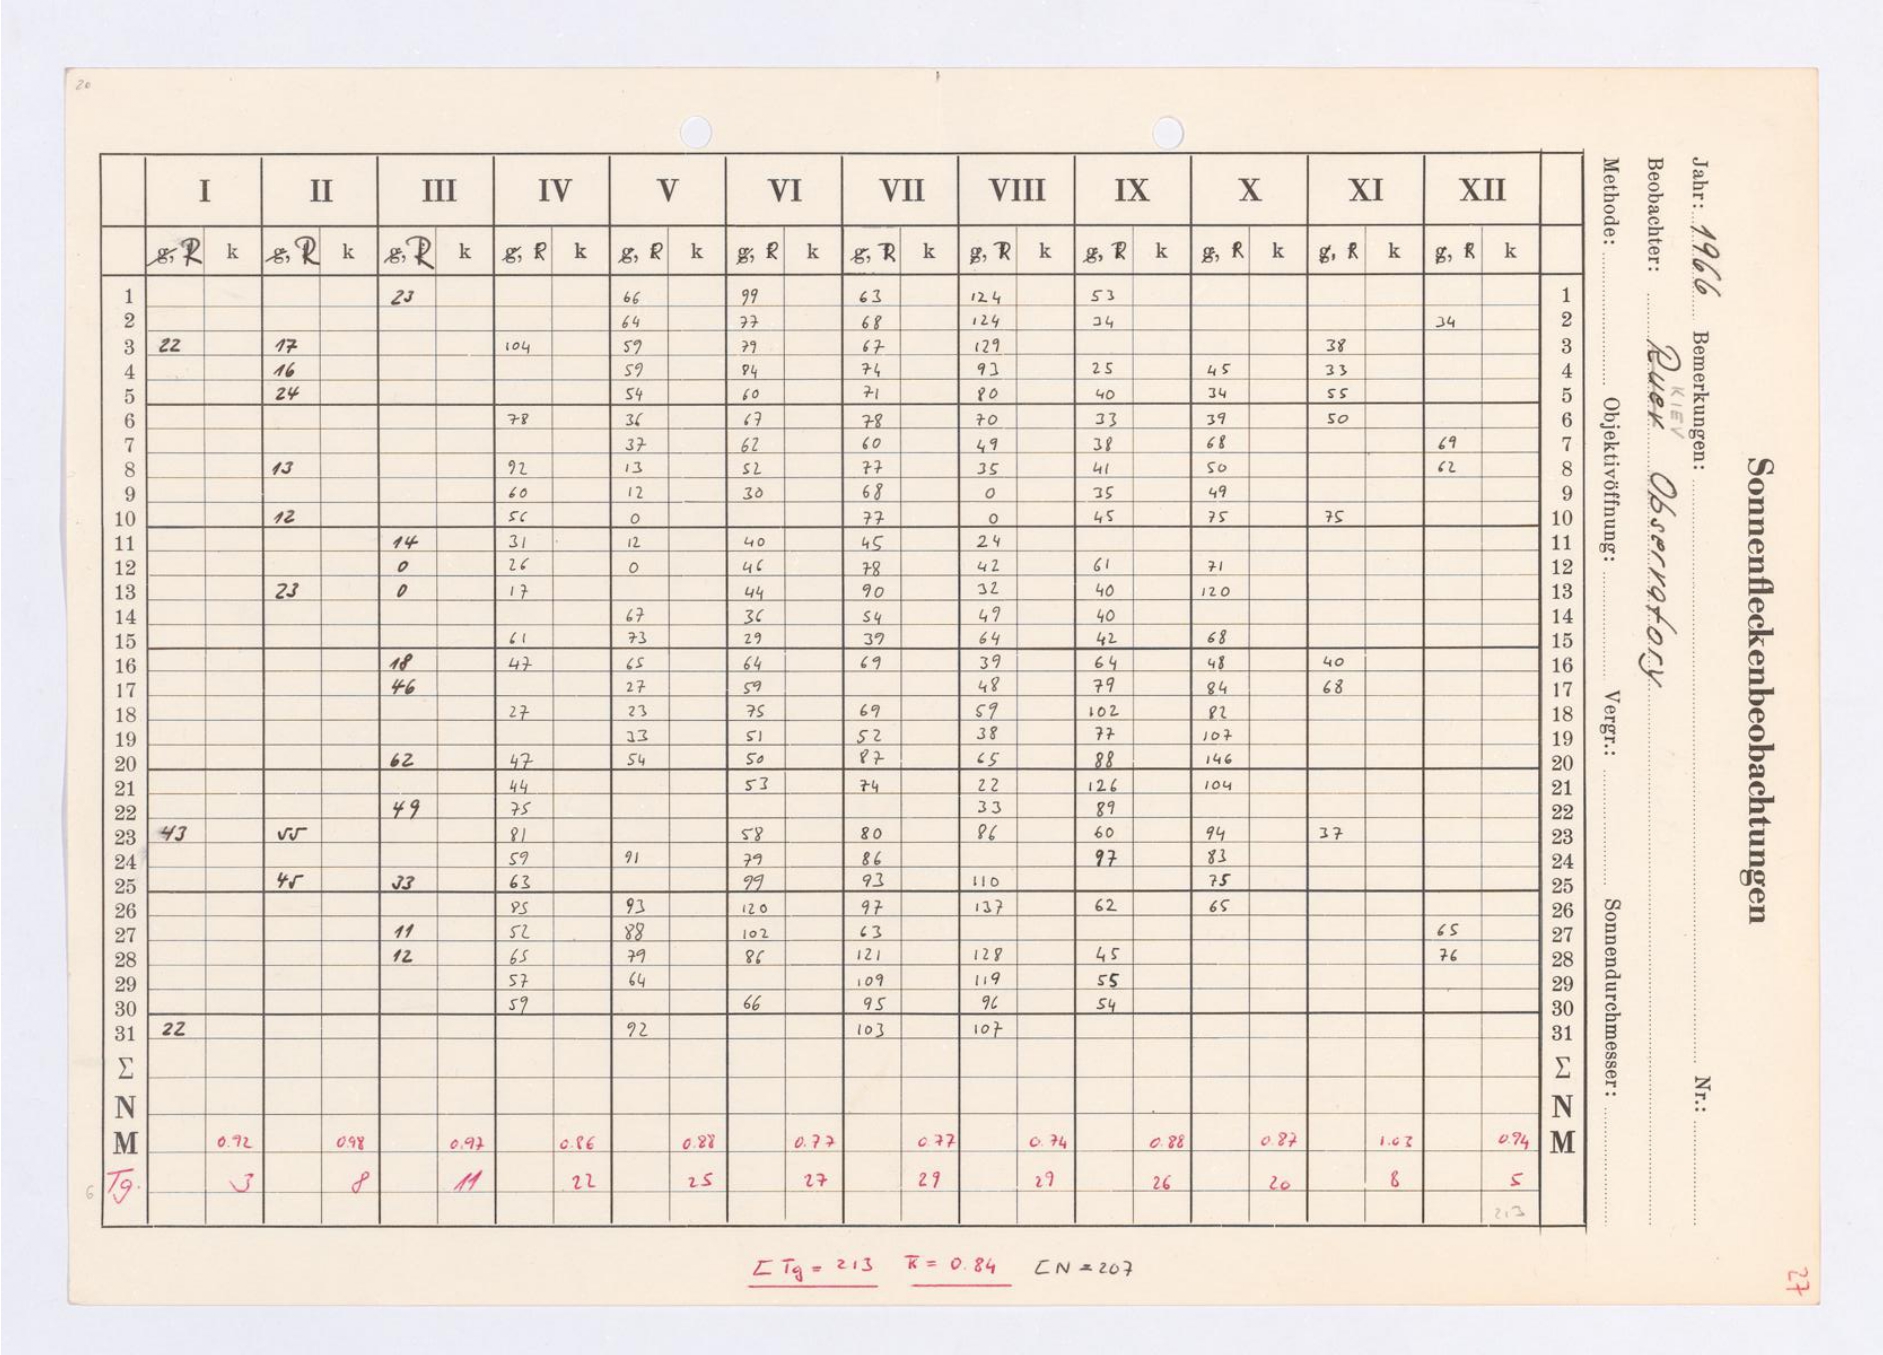 20
Sonnenfleckenbeobachtungen
Jahr: 1966 Bemerkungen: Nr.:
KIEV
Beobachter: Observatory
Methode: Objektivöffnung: Vergr.: Sonnendurchmesser:
I II III IV V VI VII VIII IX X XI XII
g, R k g, R k g, R k g, R k g, R k g, R k g, R k g, R k g, R k g, R k g, R k g, R k
1 23 66 99 63 124 53 1
2 64 77 68 124 34 34 2
3 22 17 104 59 79 67 129 38 3
4 16 59 84 74 93 25 45 33 4
5 24 54 60 71 80 40 34 55 5
6 78 36 67 78 70 33 39 50 6
7 37 62 60 49 38 68 69 7
8 13 92 13 52 77 35 41 50 62 8
9 60 12 30 68 0 35 49 9
10 12 56 0 77 0 45 75 75 10
11 14 31 12 40 45 24 11
12 0 26 0 46 78 42 61 71 12
13 23 0 17 44 90 32 40 120 13
14 67 36 54 49 40 14
15 61 73 29 39 64 42 68 15
16 18 47 65 64 69 39 64 48 40 16
17 46 27 59 48 79 84 68 17
18 27 23 75 69 59 102 82 18
19 33 51 52 38 77 107 19
20 62 47 54 50 87 65 88 146 20
21 44 53 74 22 126 104 21
22 49 75 33 89 22
23 43 55 81 58 80 86 60 94 37 23
24 59 91 79 86 97 83 24
25 45 33 63 99 93 110 75 25
26 85 93 120 97 137 62 65 26
27 11 52 88 102 63 65 27
28 12 65 79 86 121 128 45 76 28
29 57 64 109 119 55 29
30 59 66 95 96 54 30
31 22 92 103 107 31
Σ Σ
N N
M 0.92 0.98 0.97 0.86 0.88 0.77 0.77 0.74 0.88 0.87 1.03 0.94 M
6 Tg. 3 8 11 22 25 27 29 29 26 20 8 5
213
Σ Tg = 213 k̅ = 0.84 ΣN = 207
27